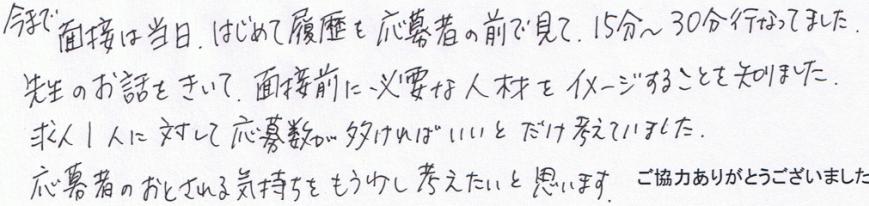 今まで面接は当日、はじめて履歴を応募者の前で見て、15分〜30分行なってました。
先生のお話をきいて、面接前に必要な人材をイメージすることを知りました。
求人1人に対して応募数が多ければいいとだけ考えていました。
応募者のおとされる気持ちをもう少し考えたいと思います。 ご協力ありがとうございました